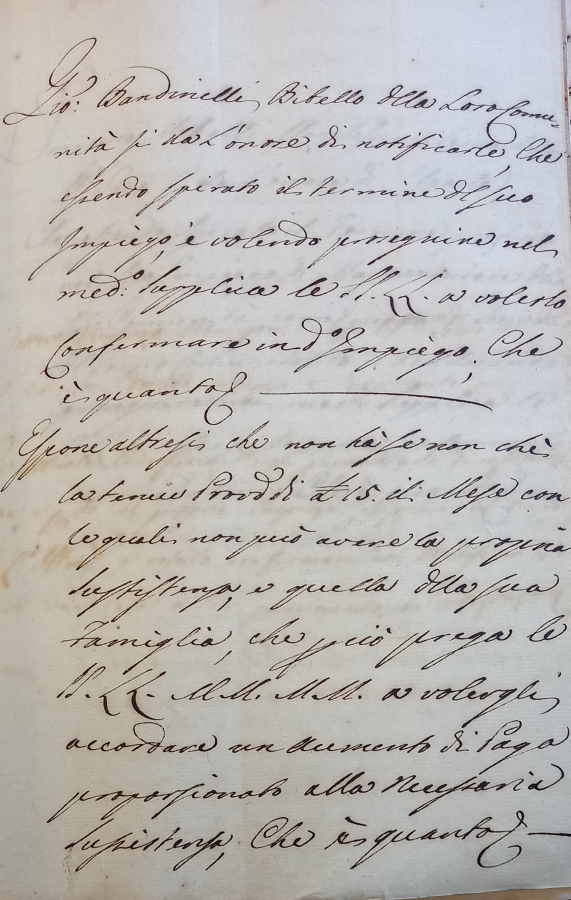 Gio: Bandinelli Bibello dlla Loro Comu-
nità si da L'onore di notificarle, Che
essendo spirato il termine del suo
Impiego, e volendo proseguire nel
med:o supplica le SS. LL. a volerlo
Confermare in d.o Impiego; Che
è quanto
Espone altresì che non hà se non che
la tenue Provv.di £ 15. il Mese con
le quali non può avere la propria
sussistenza, e quella dlla sua
Famiglia, che p ciò prega le
SS. LL. M.M. M.M. a volergli
accordare un Aumento di Paga
proporzionato alla Necessaria
sussistenza, Che è quanto